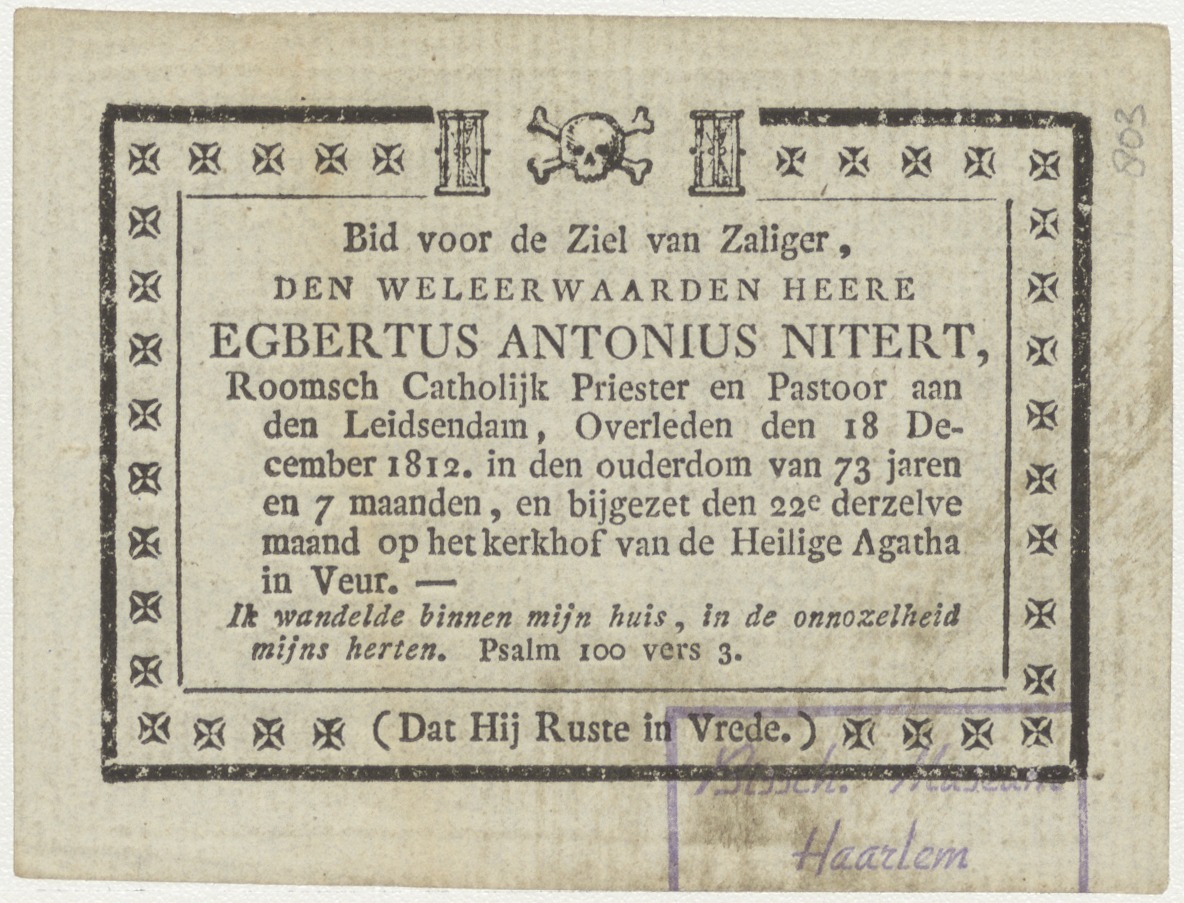 Bid voor de Ziel van Zaliger,
DEN WELEERWAARDEN HEERE
EGBERTUS ANTONIUS NITERT,
Roomsch Catholijk Priester en Pastoor aan
den Leidsendam, Overleden den 18 De-
cember 1812. in den ouderdom van 73 jaren
en 7 maanden, en bijgezet den 22e derzelve
maand op het kerkhof van de Heilige Agatha
in Veur. —
Ik wandelde binnen mijn huis, in de onnozelheid
mijns herten. Psalm 100 vers 3.
(Dat Hij Ruste in Vrede.)
Bissch. Museum
Haarlem
803